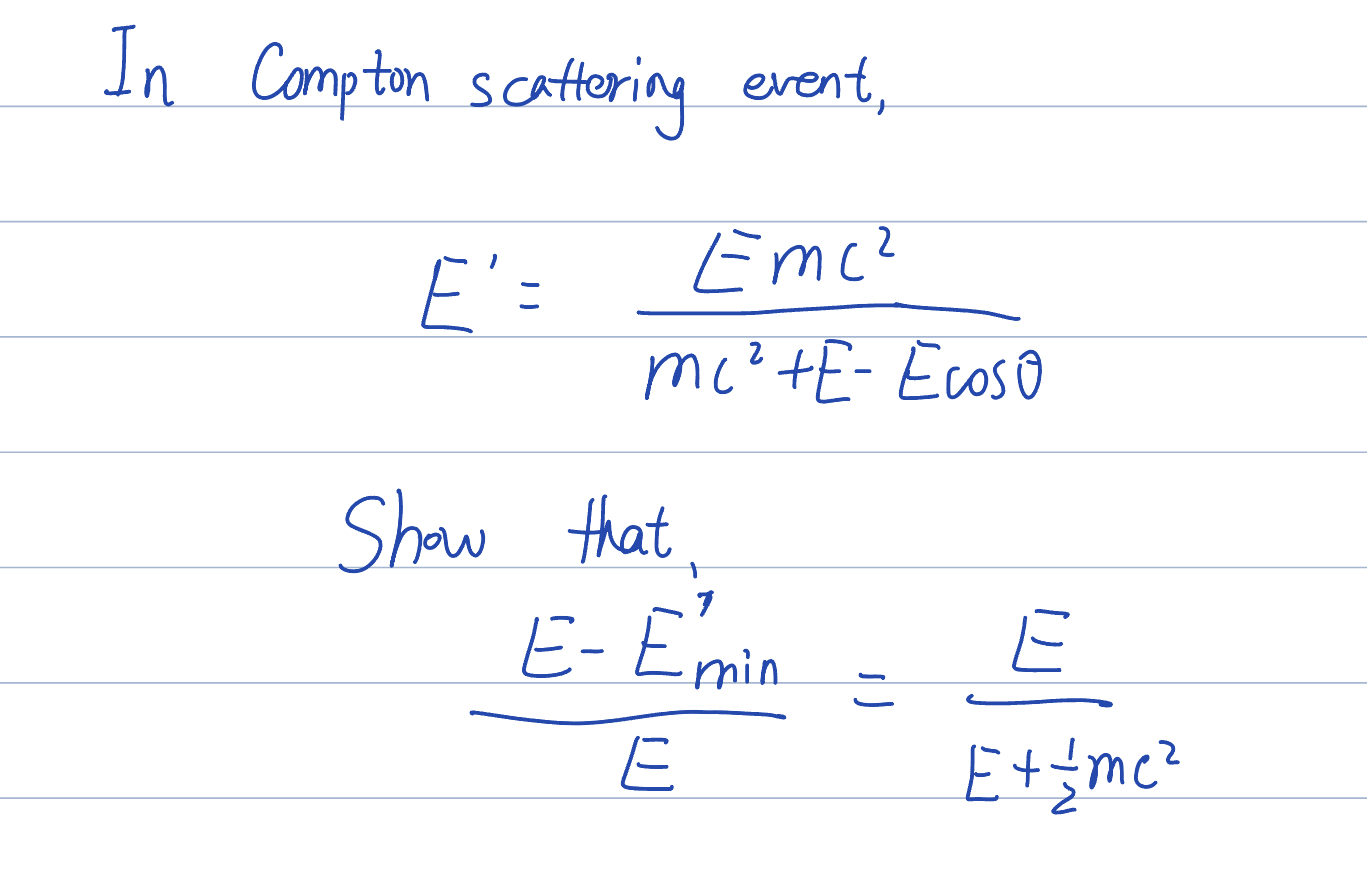 In Compton scattering event,
E' = Emc² / (mc² + E - E cosθ)
Show that,
(E - E'min) / E = E / (E + ½mc²)